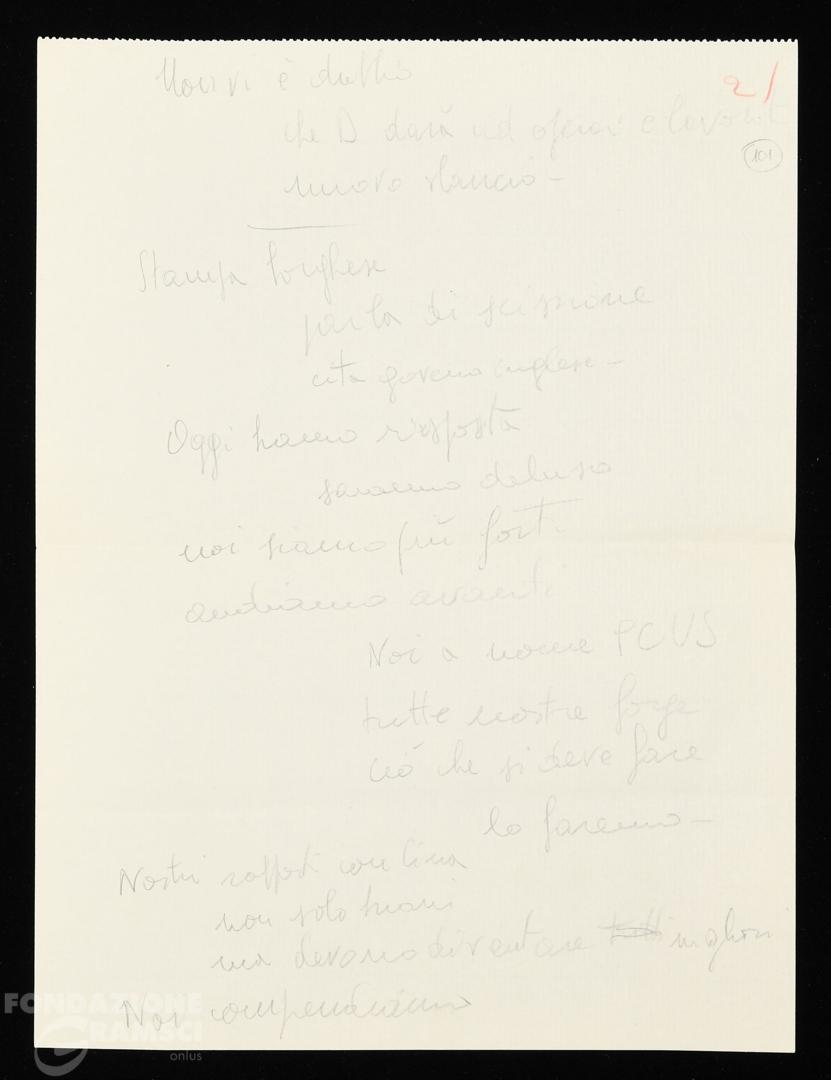 21
101
Non vi è dubbio
che D darà ad operai e lavorat
nuovo slancio –
Stampa borghese
parla di scissione
cita governo inglese –
Oggi hanno risposta
saranno delusi
noi siamo più forti
andiamo avanti
Noi a nome PCUS
tutte nostre forze
ciò che si deve fare
lo faremo –
Nostri rapporti con Cina
non solo
ma devono diventare tutti migliori
Noi
FONDAZIONE
GRAMSCI
onlus